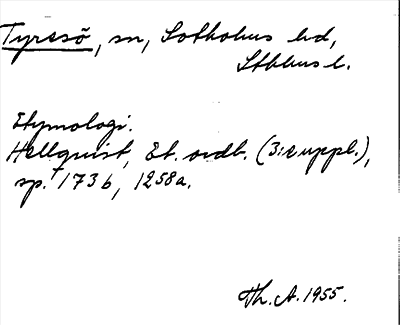 Tyresö, sn, Sotholms hd,
Sthlms l.
Etymologi.
Hellquist, Et. ordb. (3:e uppl.),
sp. 173 b, 1258a.
Th. A. 1955.